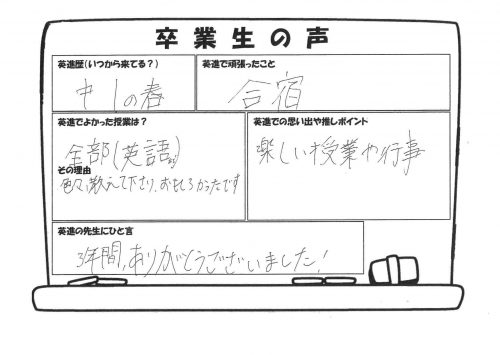 卒業生の声
英進歴(いつから来てる？)
中1の春
英進で頑張ったこと
合宿
英進でよかった授業は？
全部(英語
その理由
色々教えて下さり、おもしろかったです
英進での思い出や推しポイント
楽しい授業や行事
英進の先生にひと言
3年間、ありがとうございました!